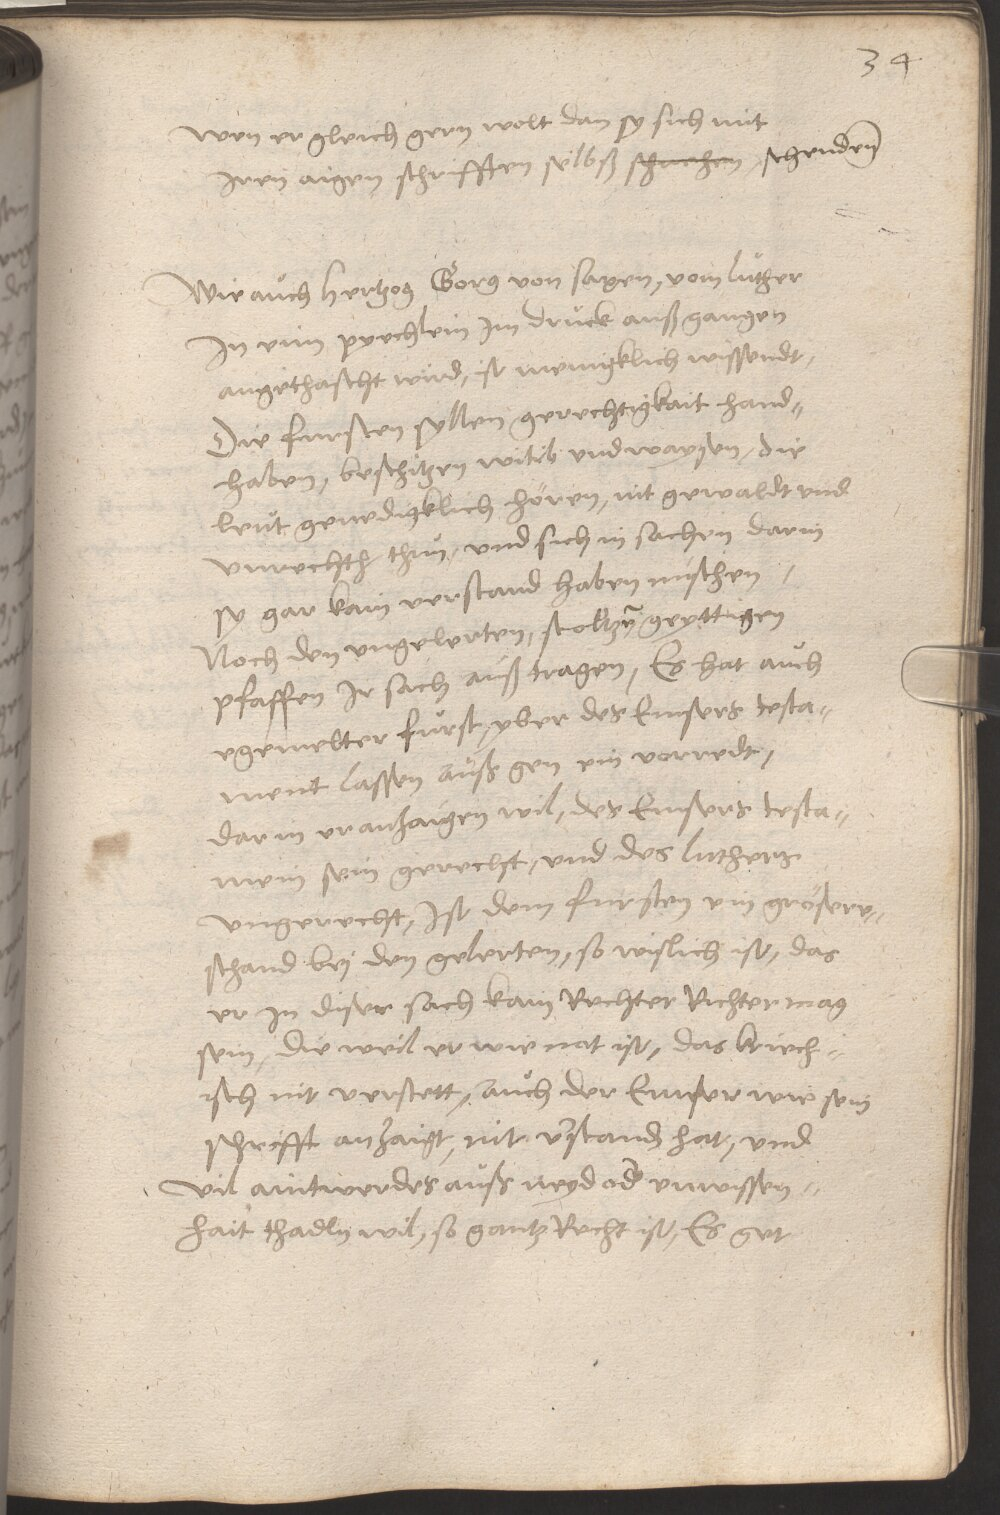 34
wen er gleich gern wolt dan sy sich mit
Iren aigen schrifften selbß schenden
Wie auch hertzog Gorg von saxen, vom luther
In eim pyechlein Im druck außgangen
angethascht wird, ist menigklich wissendt,
Die fursten sollen gerechtigkait hand-
haben, beschitzen witib und waysen, die
leut genedigklich hören, nit gewaldt und
unrechth thun, und sich in sachen darin
sy gar kain verstand haben mischen,
Noch den ungelerten, stoltzen geyttigen
pfaffen Ir sach auß tragen, Es hat auch
egemelter furst, yber des Emsers testa-
ment lassen auß gen ein vorredt,
darin er anzaigen wil, des Emsers testa-
men sein gerecht, und des luthers
ungerecht, Ist dem fursten ein grosere
schand bej den gelerten, so wislich ist, das
er In diser sach kain Rechter Richter mag
sein, die weil er wie not ist, das kriech-
isch nit verstett, auch der Emser wie sein
schrifft anzaigt, nit verstand hat, und
vil aintwerdes auß neyd oder unwissen-
hait thadln wil, so gantz Recht ist, Es get